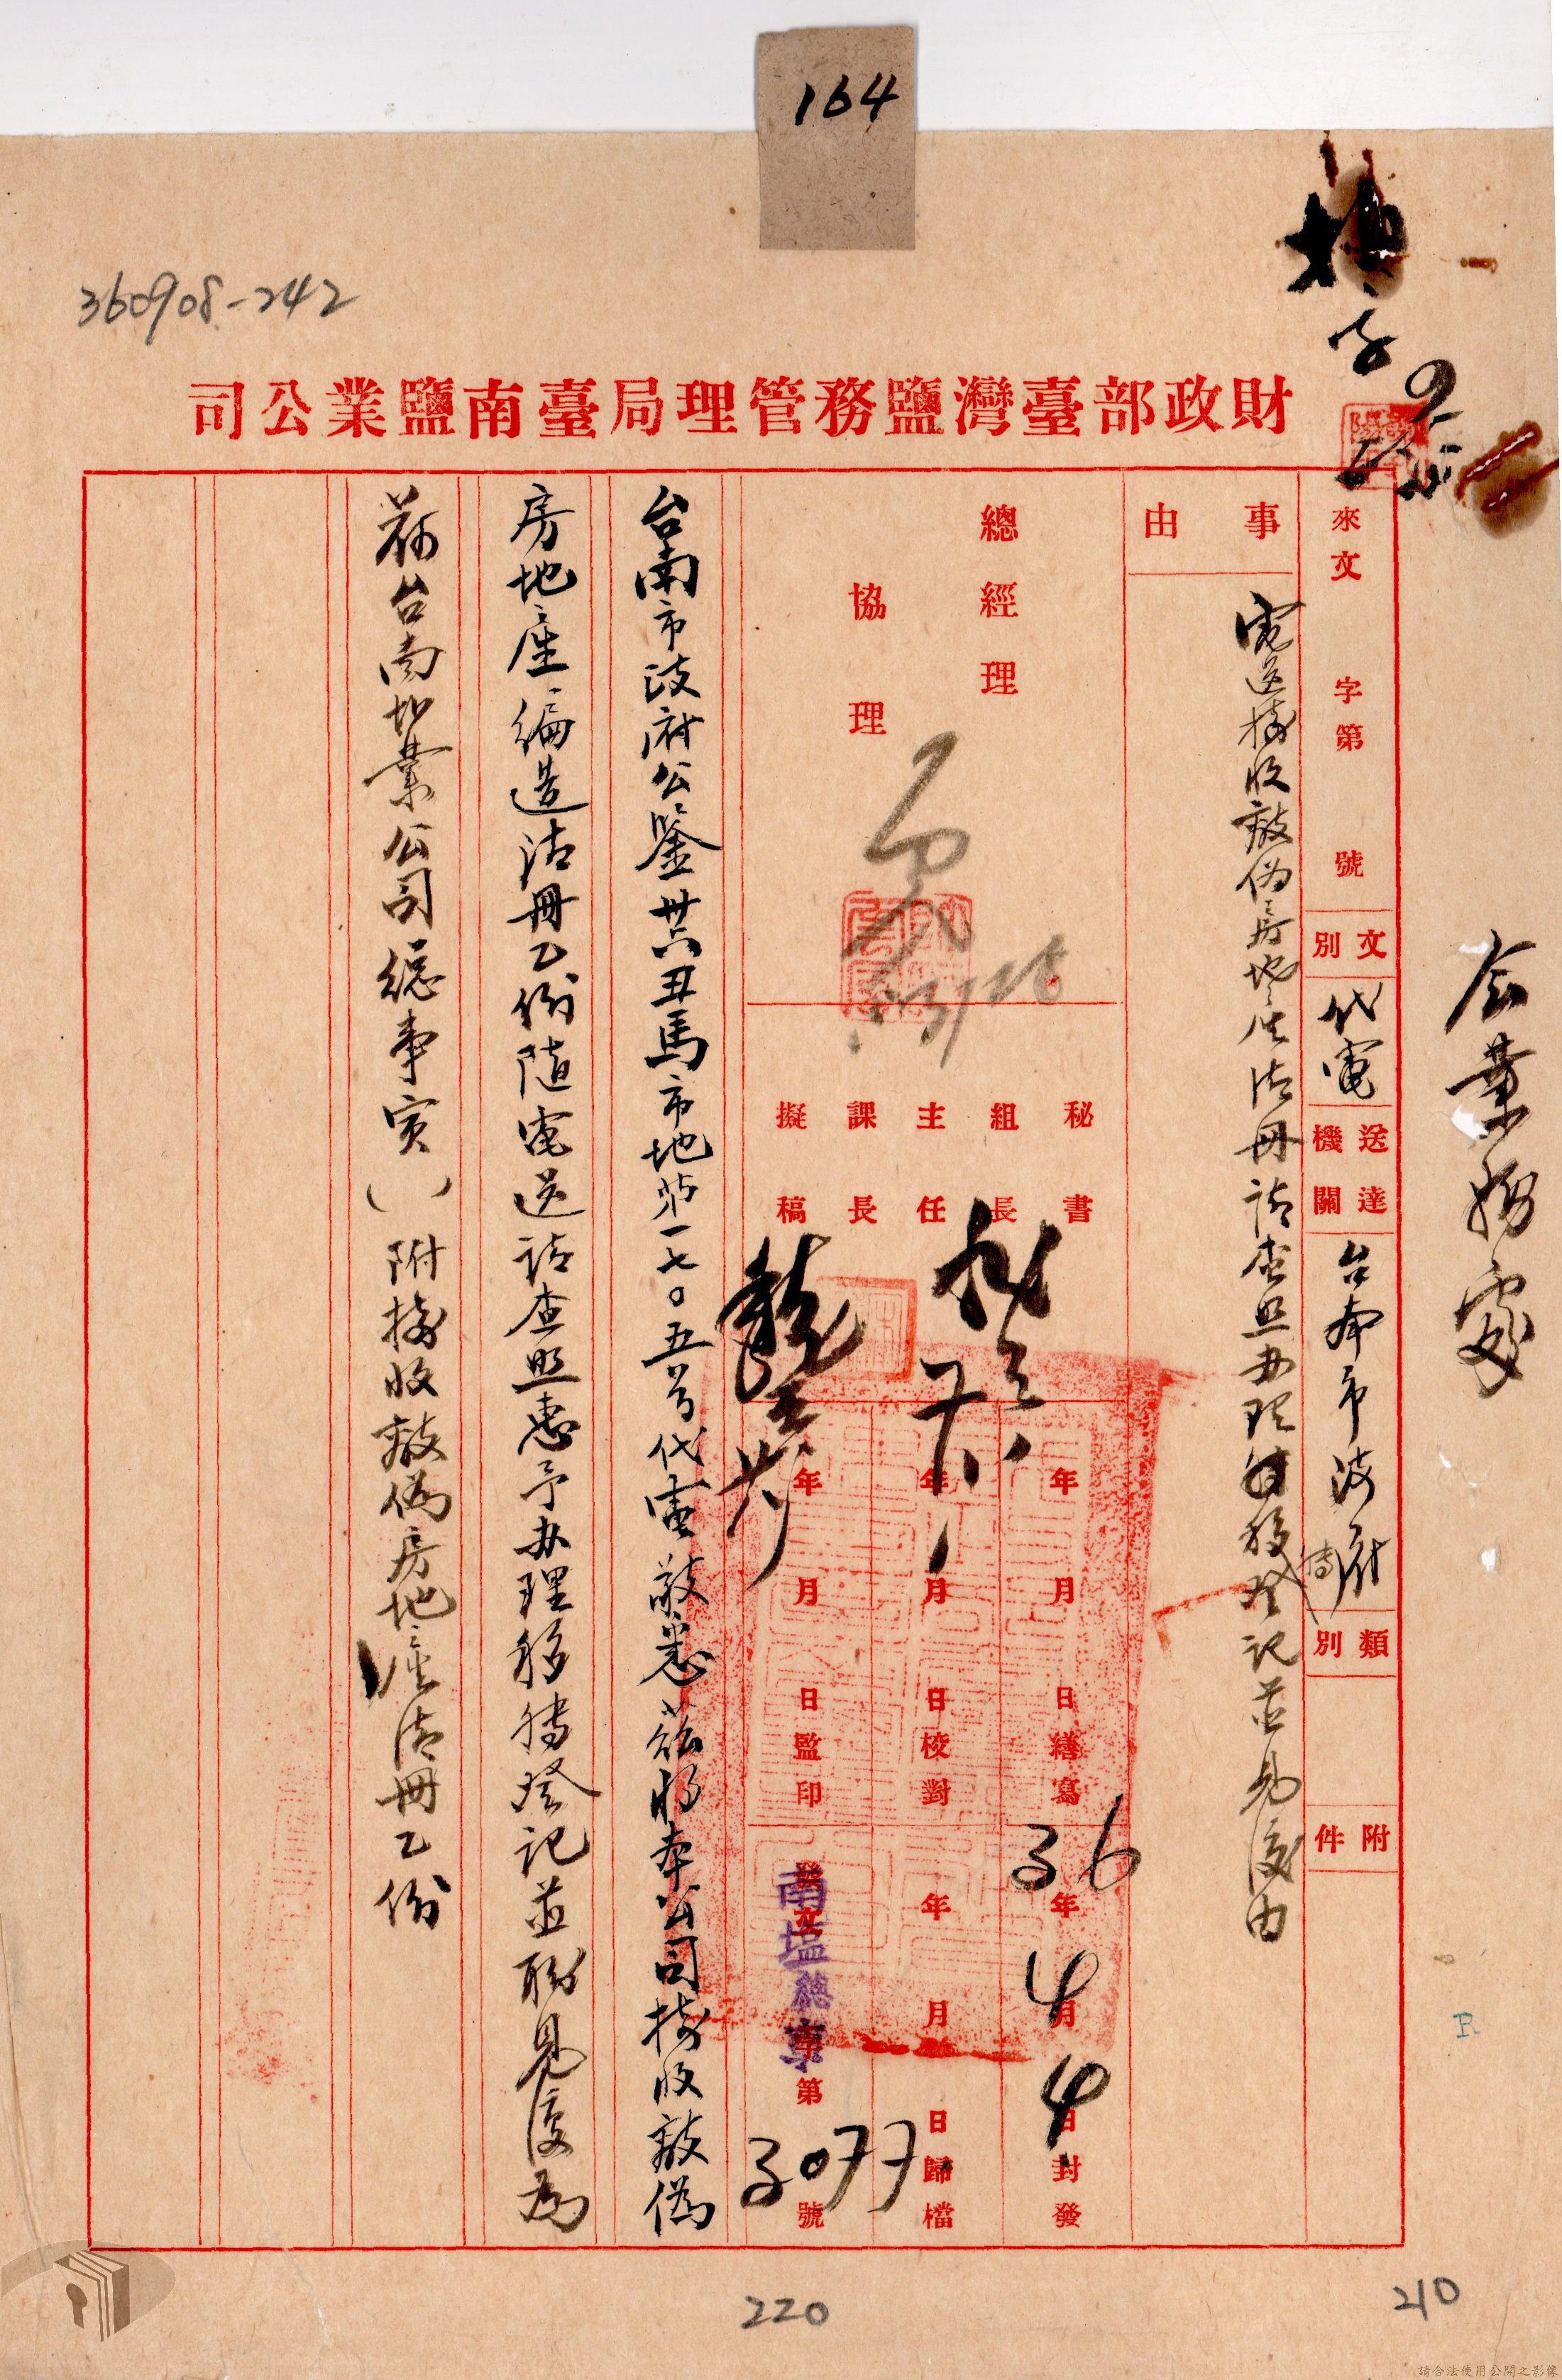 164
360908-242
財政部臺灣鹽務管理局臺南鹽業公司
會業務處
來文 字第 號
文別 代電
送達機關 台南市政府
類別
附件
事由
電送接收敵偽房地產清冊請查照办理移轉登記並見復由
總經理
協理
秘書
組長
主任
課長
擬稿
年 月 日繕寫
年 月 日校對
年 月 日監印
36年4月4日封發
年 月 日歸檔
發文南塩總事第3077號
台南市政府公鑒卅六丑馬市地第一七〇五號代電敬悉茲將本公司接收敵偽
房地產編造清冊乙份隨電送請查照惠予办理移轉登記並盼見復為
荷台南塩業公司總事寅( )附接收敵偽房地產清冊乙份
220
210
R
請合法使用公開之影像